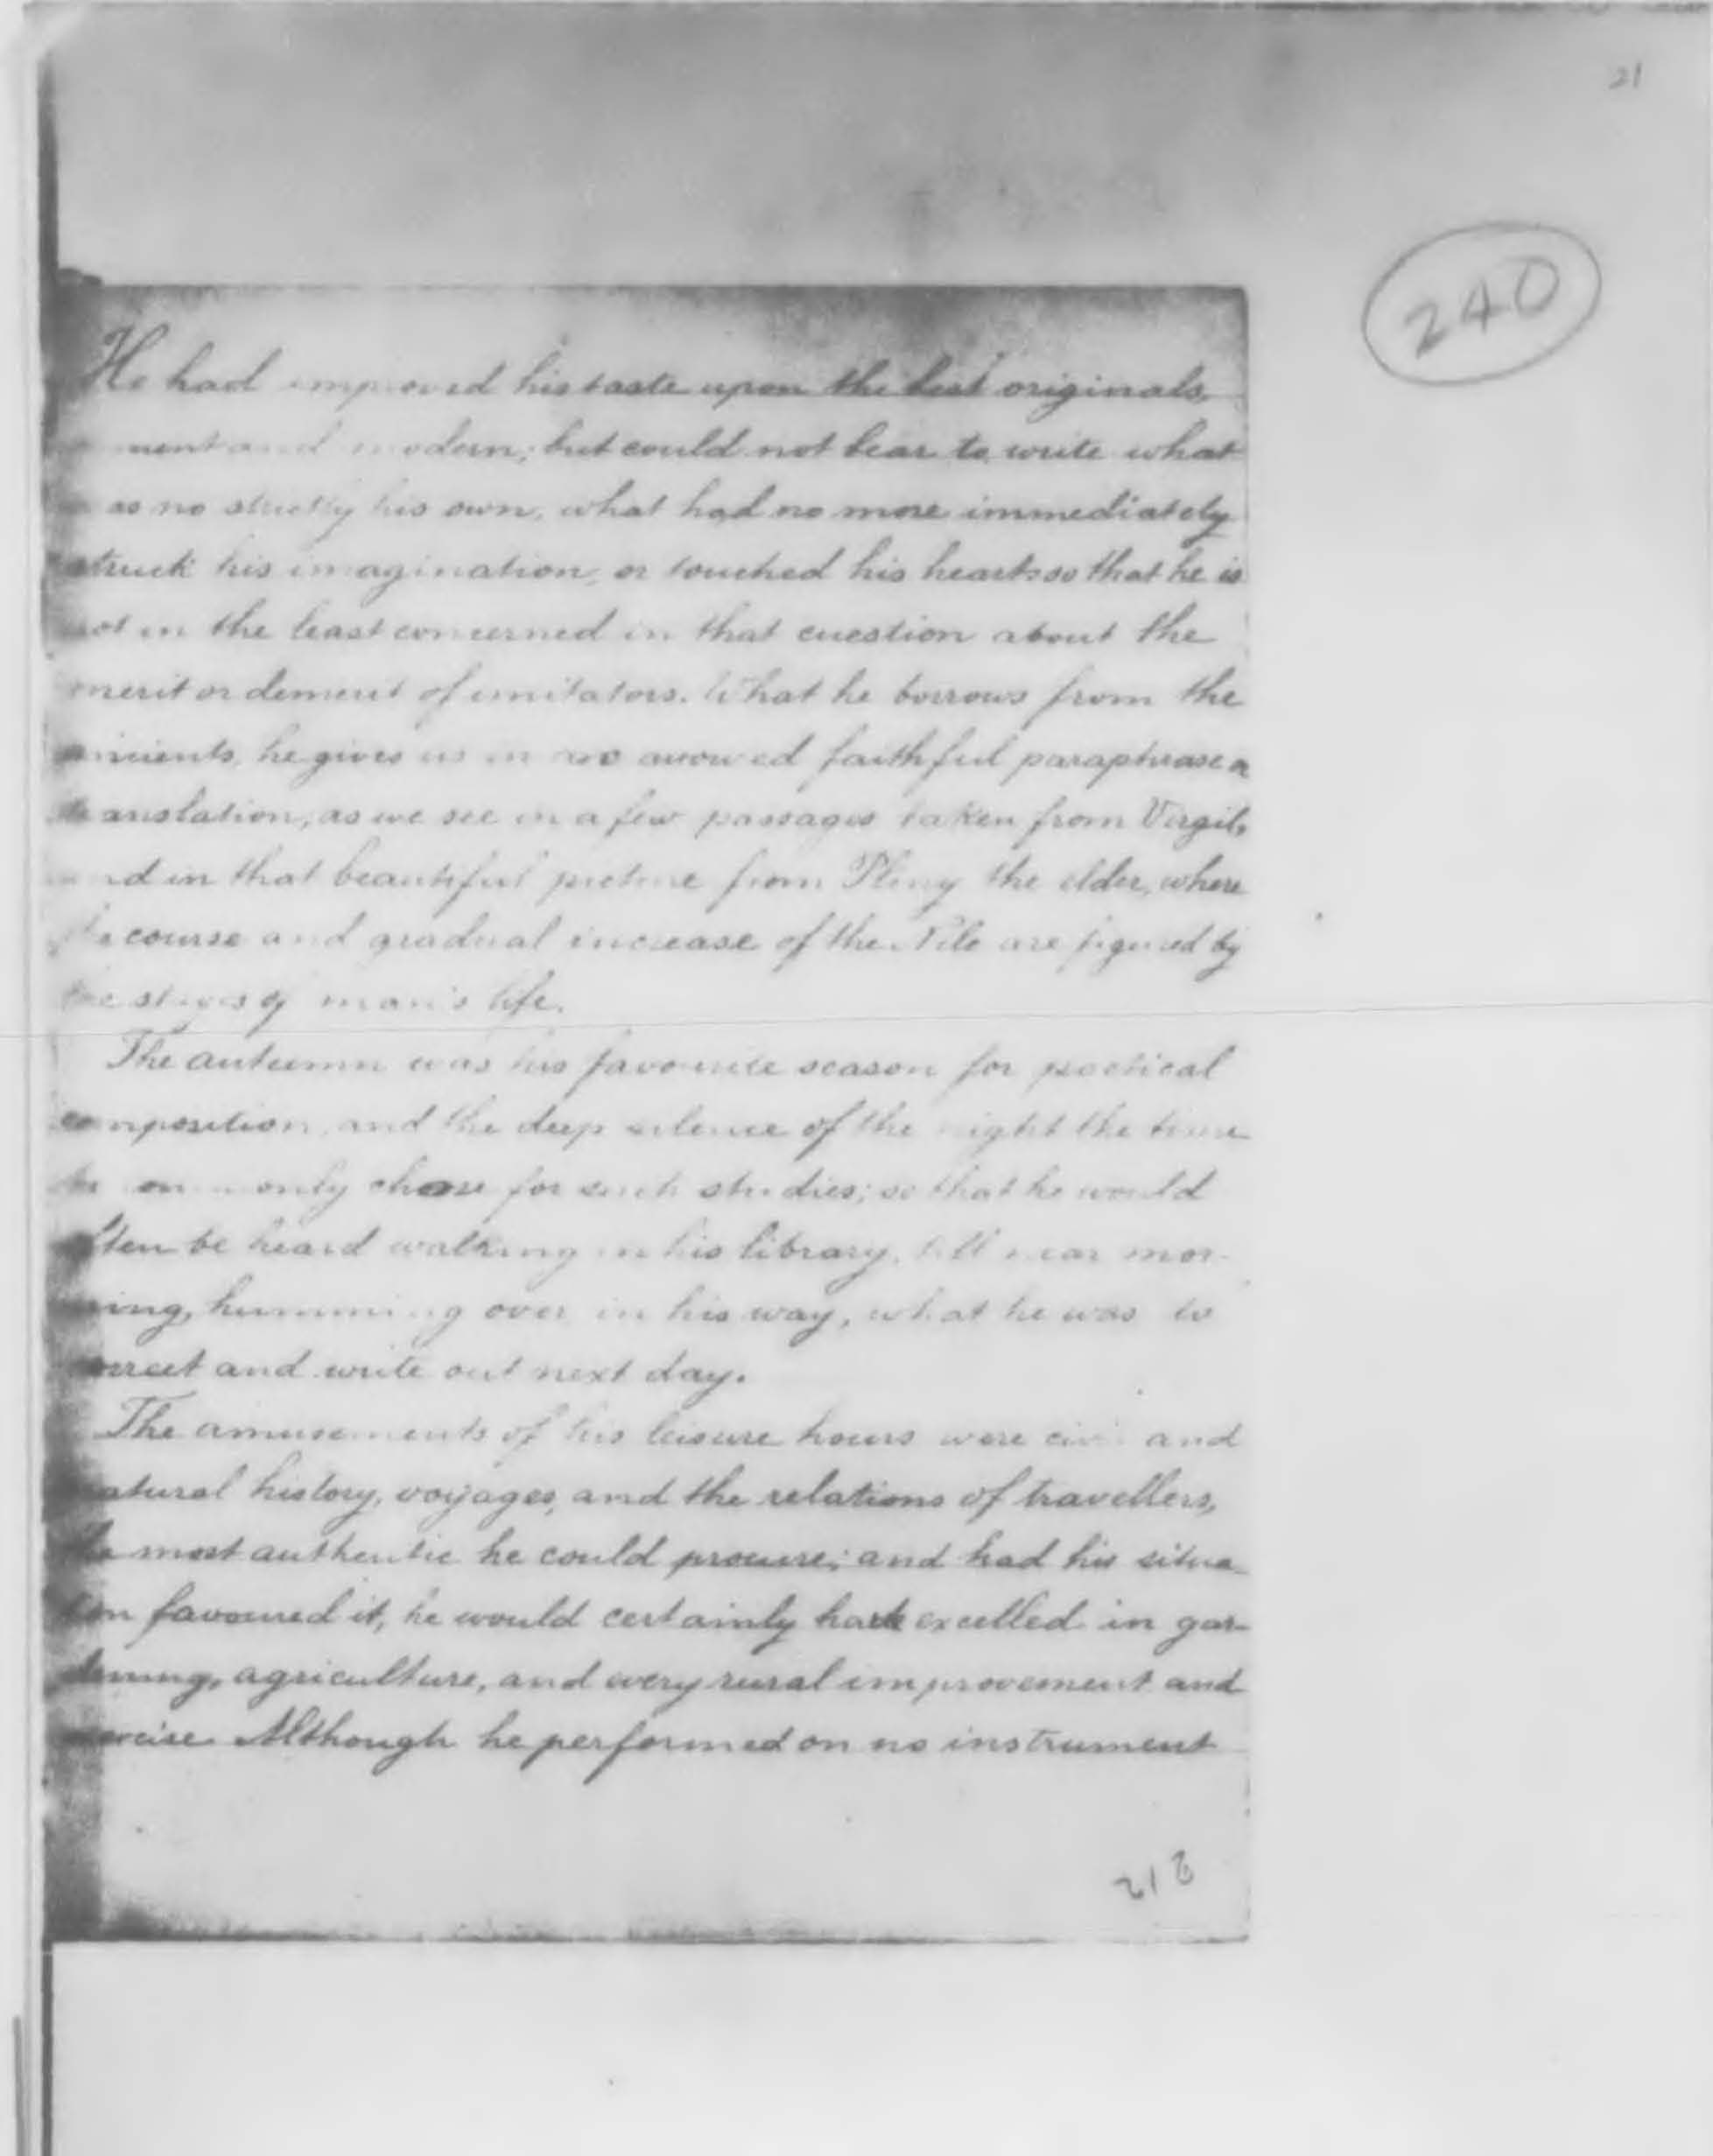 21
240
He had improved his taste upon the best originals,
and modern; but could not bear to write what
as no strictly his own, what had no more immediately
struck his imagination, or touched his heart: so that he is
not in the least concerned in that cuestion about the
merit or demerit of imitators. What he borrows from the
ancients, he gives us in an avowed faithful paraphrase or
translation, as we see in a few passages taken from Virgil,
and in that beautiful picture from Pliny the elder, where
the course and gradual increase of the Nile are figured by
the stages of man's life.
The autumn was his favourite season for poetical
composition, and the deep silence of the night the time
he commonly chose for such studies; so that he would
often be heard walking in his library, till near mor-
ning, humming over in his way, what he was to
correct and write out next day.
The amusements of his leisure hours were civil and
natural history, voyages, and the relations of travellers,
the most authentic he could procure; and had his situa-
tion favoured it, he would certainly have excelled in gar-
dening, agriculture, and every rural improvement and
exercise. Although he performed on no instrument